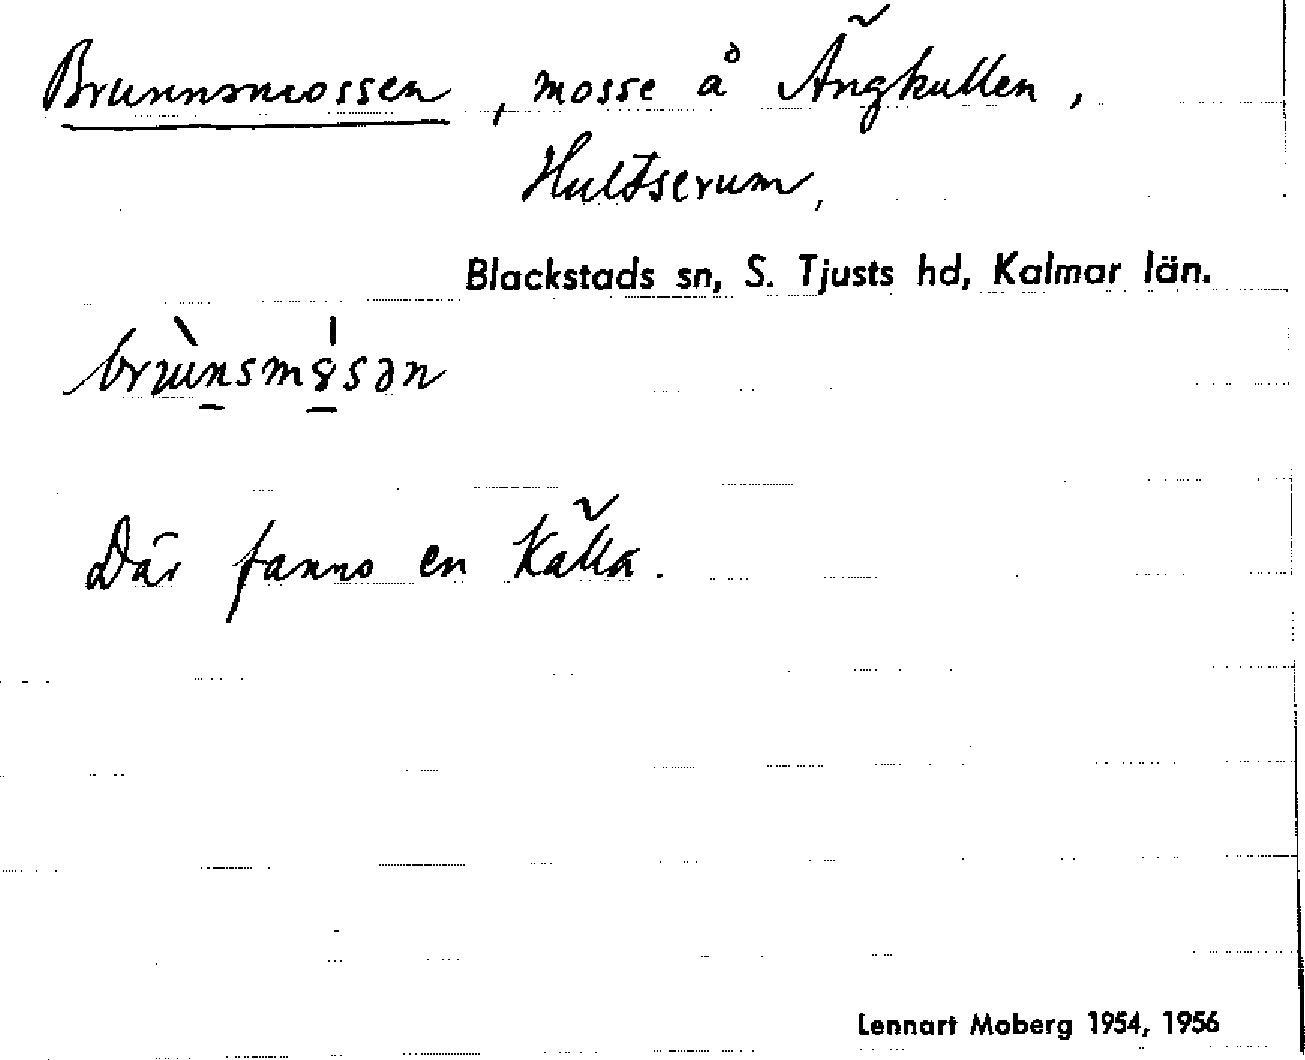 Brunnsmossen, mosse å Ängkullen,
Hultserum,
Blackstads sn, S. Tjusts hd, Kalmar län.
Där fanns en källa.
Lennart Moberg 1954, 1956